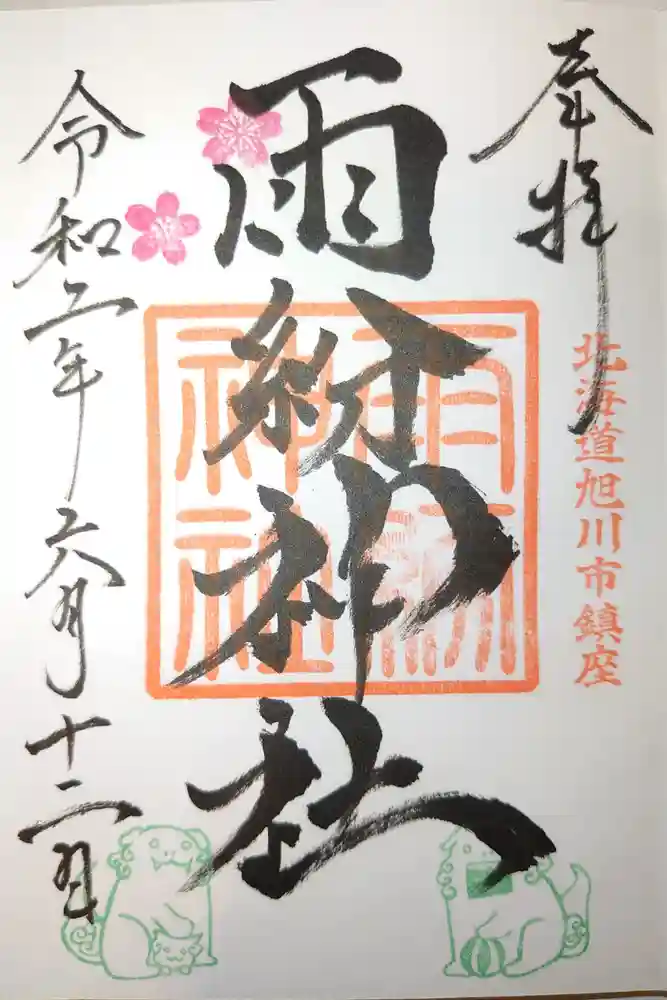 奉拝
北海道旭川市鎮座
雨紛神社
雨紛神社
令和二年六月十二日